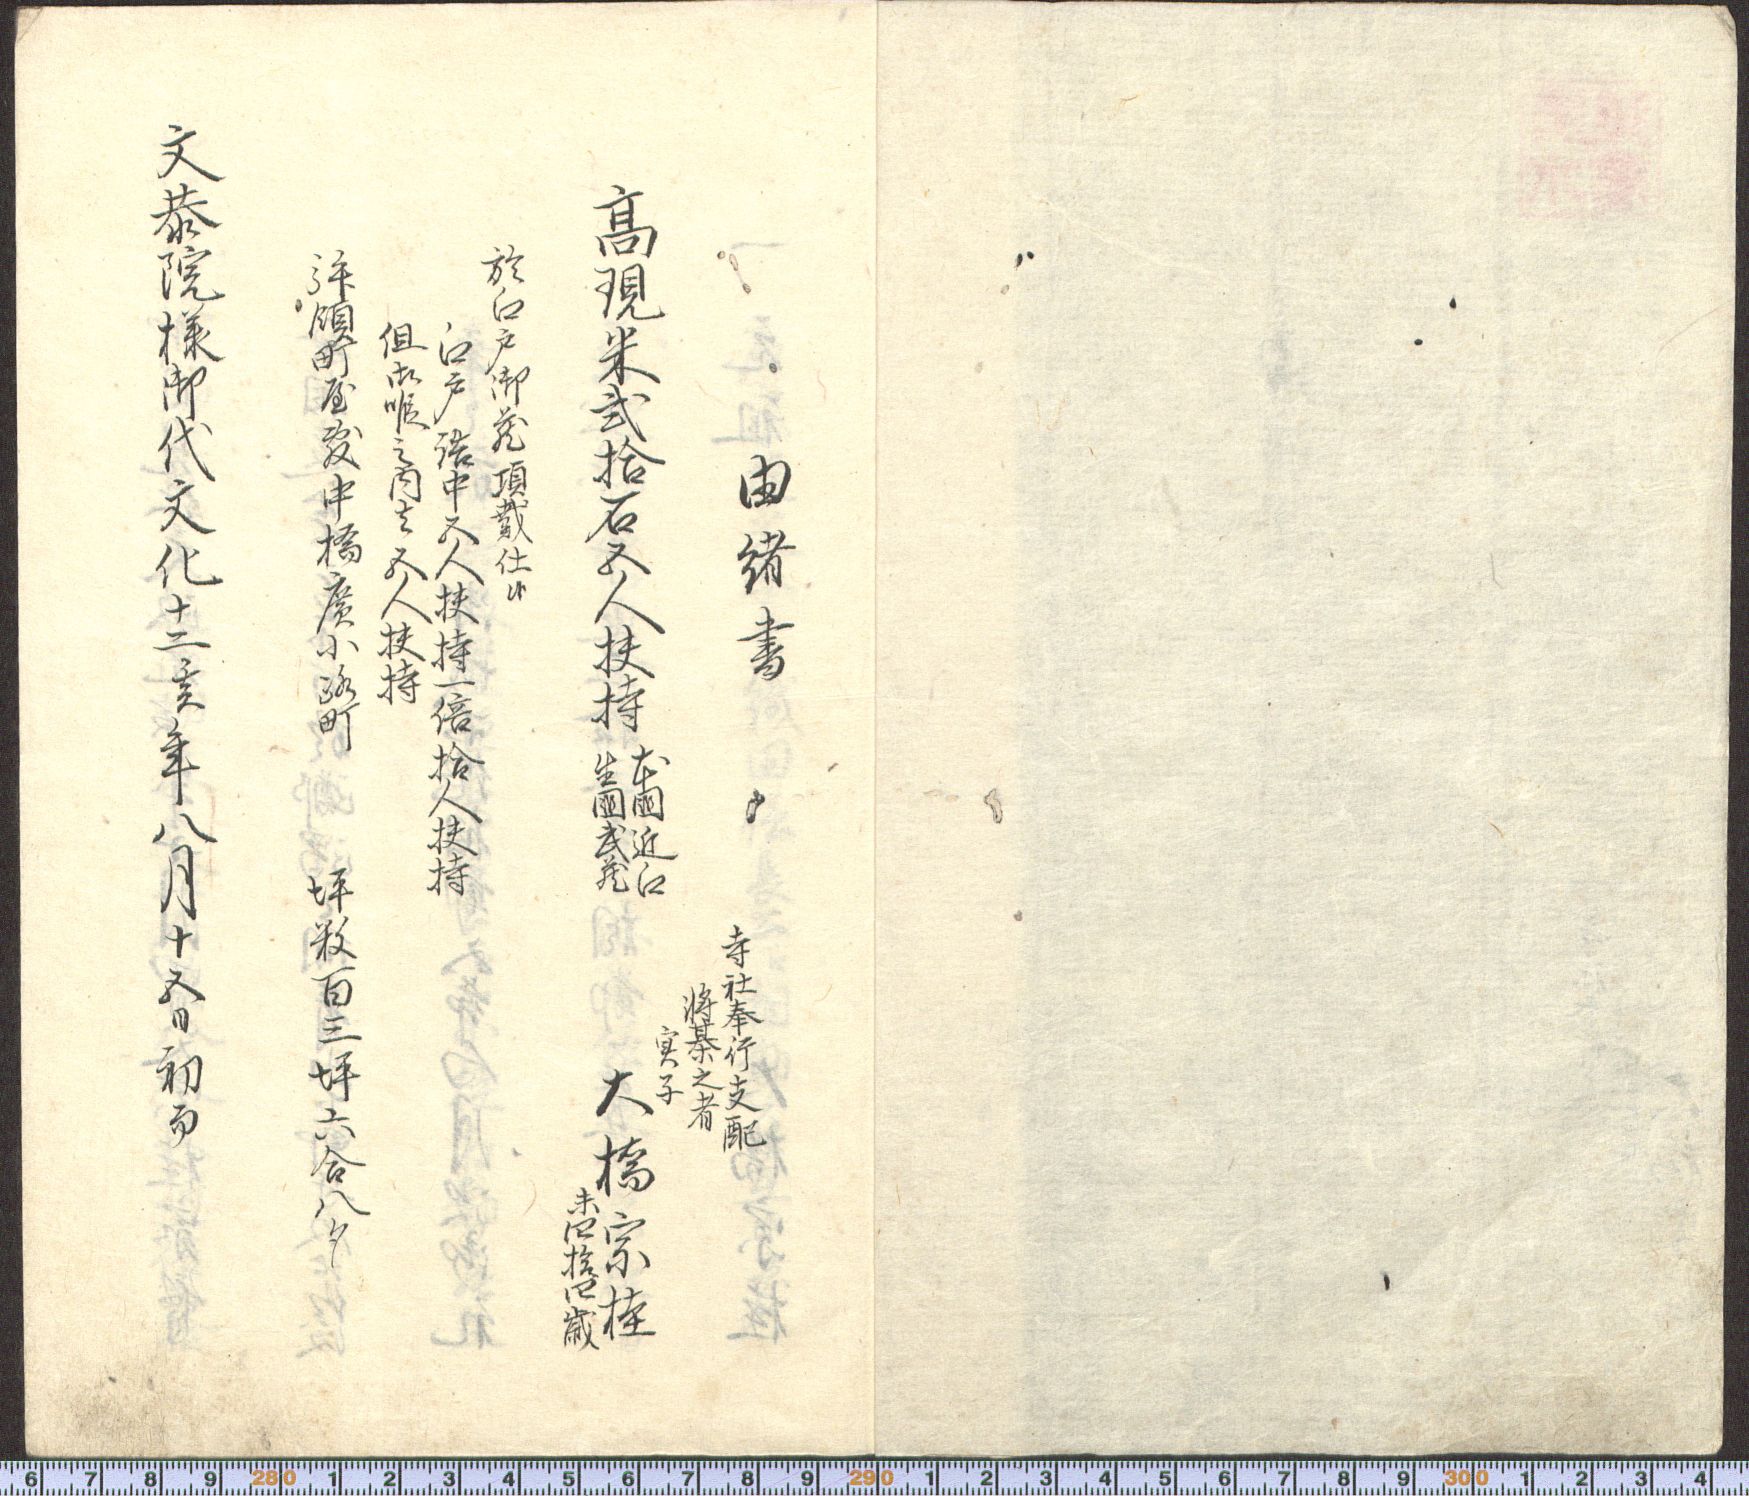 由緒書
寺社奉行支配
将棊之者
実子
高現米弐拾石五人扶持
本國近江
生國武蔵
大橋宗桂
未四拾四歳
於江戸御蔵頂戴仕候
江戸詰中五人扶持一倍拾人扶持
但御暇之内者五人扶持
拝領町屋敷中橋廣小路町
坪数百三坪六合八夕
文恭院様御代文化十二亥年八月十五日初而